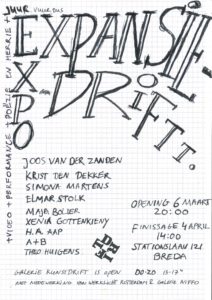 + VIDEO + PERFORMANCE + POËZIE EN HERRIE +
EXPO
EXPANSIE
DRIFT
JOOS VAN DER ZANDEN
KRIST TEN DEKKER
SIMONA MARTENS
ELMAR STOLK
MAJA BOLIER
XENIA GOTTENKIENY
H.A. AAP
A+B
THEO HUIGENS
OPENING 6 MAART
20:00
FINISSAGE 4 APRIL
14:00
STATIONSLAAN 121
BREDA
GALERIE KUNSTDRIFT IS OPEN DO-ZO 13-17
MET MEDEWERKING VAN WERKLICHT ROTTERDAM & GALERIE